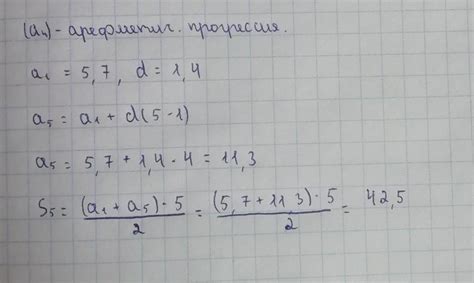 (aₙ) - арефметич. прогрессия.
a₁ = 5,7, d = 1,4
a₅ = a₁ + d(5-1)
a₅ = 5,7 + 1,4 · 4 = 11,3
S₅ = (a₁ + a₅) · 5 / 2 = (5,7 + 11,3) · 5 / 2 = 42,5